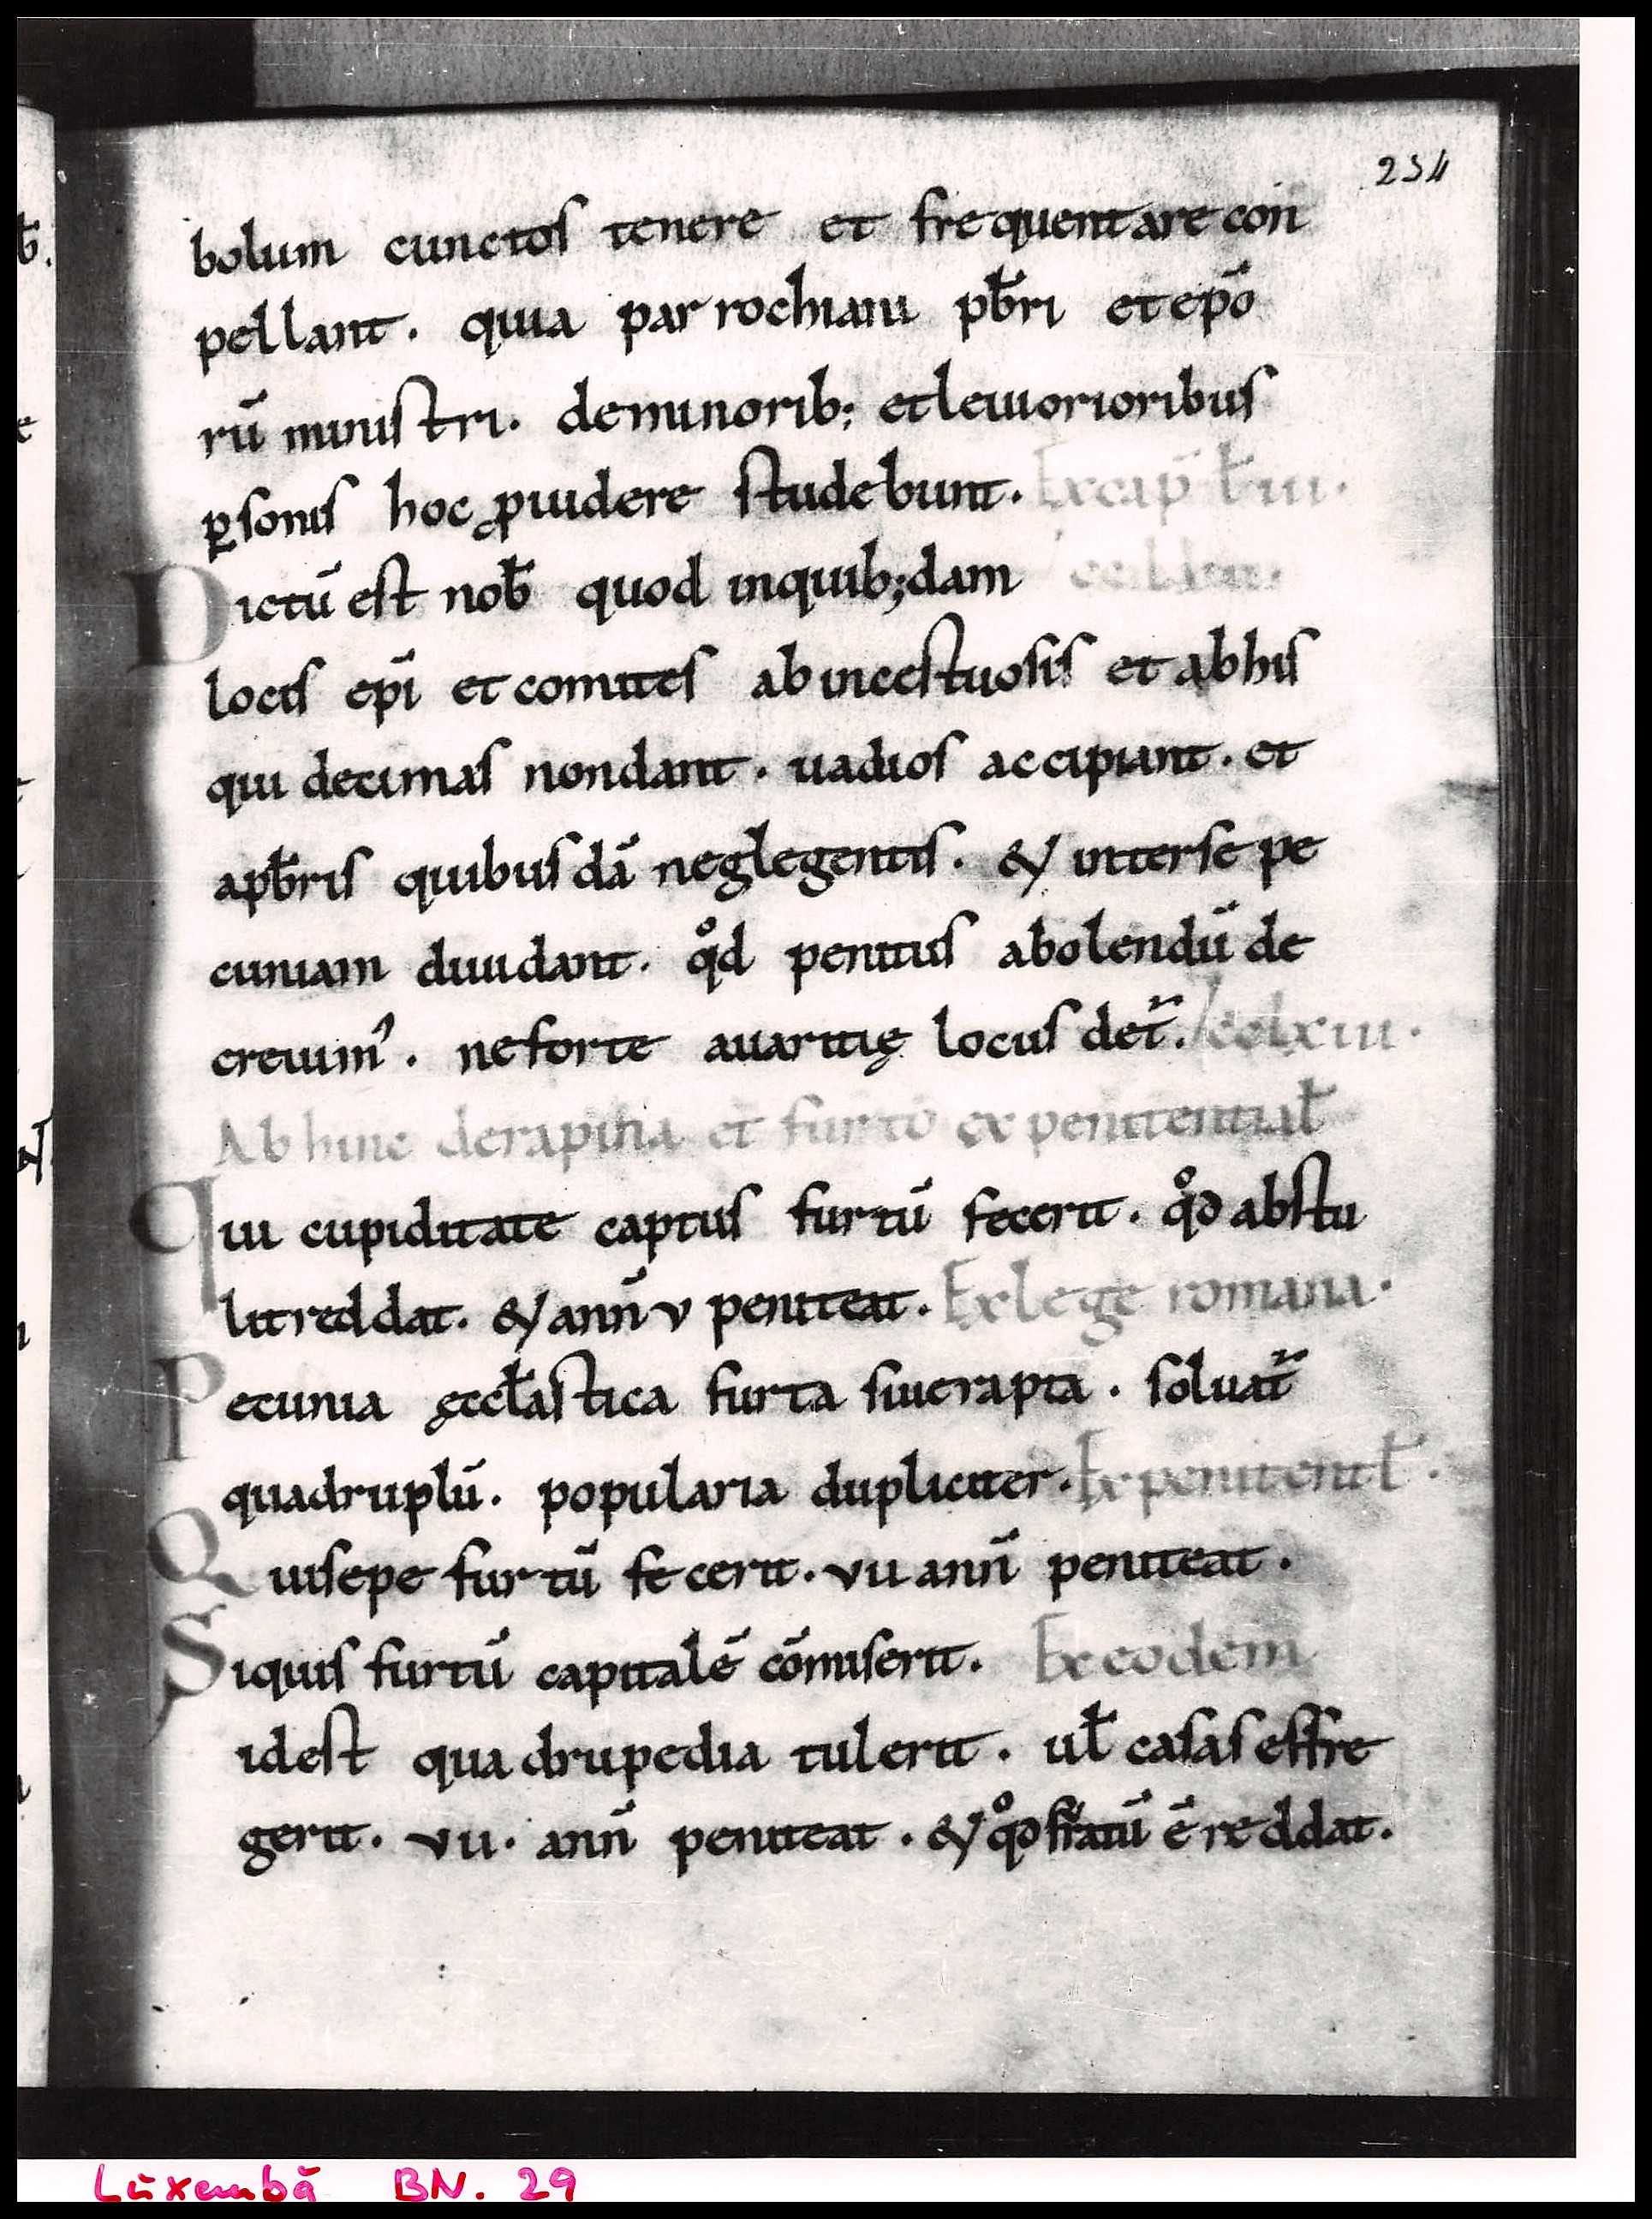 234
bolum cunctos tenere et frequentare con
pellant. quia parrochiani pb̄ri et epō
rū ministri. de minorib; et leuiorioribus
ꝑsonis hoc ꝓuidere studebunt. Ex cap̄ lib̄ iii.
Dictū est nob̄ quod in quib;dam
locis ep̄i et comites ab incestuosis et ab his
qui decimas non dant. uadios accipiant. et
a pb̄ris quibusdā neglegentis. & inter se pe
cuniam diuidant. qd̊ penitus abolendū de
creuim᾽. ne forte auaritię locus det̄. cclxiii.
Ab hinc de rapina et furto ex penitential̄
Qui cupiditate captus furtū fecerit. qd̊ abstu
lit reddat. & ann̄ v peniteat. Ex lege romana.
Pecunia ęccl̄astica furta siue rapta. soluat̄
quadruplū. popularia dupliciter. Ex penitentl̄.
Qui sepe furtū fecerit. vii ann̄ peniteat.
Si quis furtū capitalē cōmiserit. Ex eodem
id est quadrupedia tulerit. ul̄ casas effre
gerit. vii. ann̄ peniteat. & qd̊ furatū ē reddat.
Luxembā BN. 29